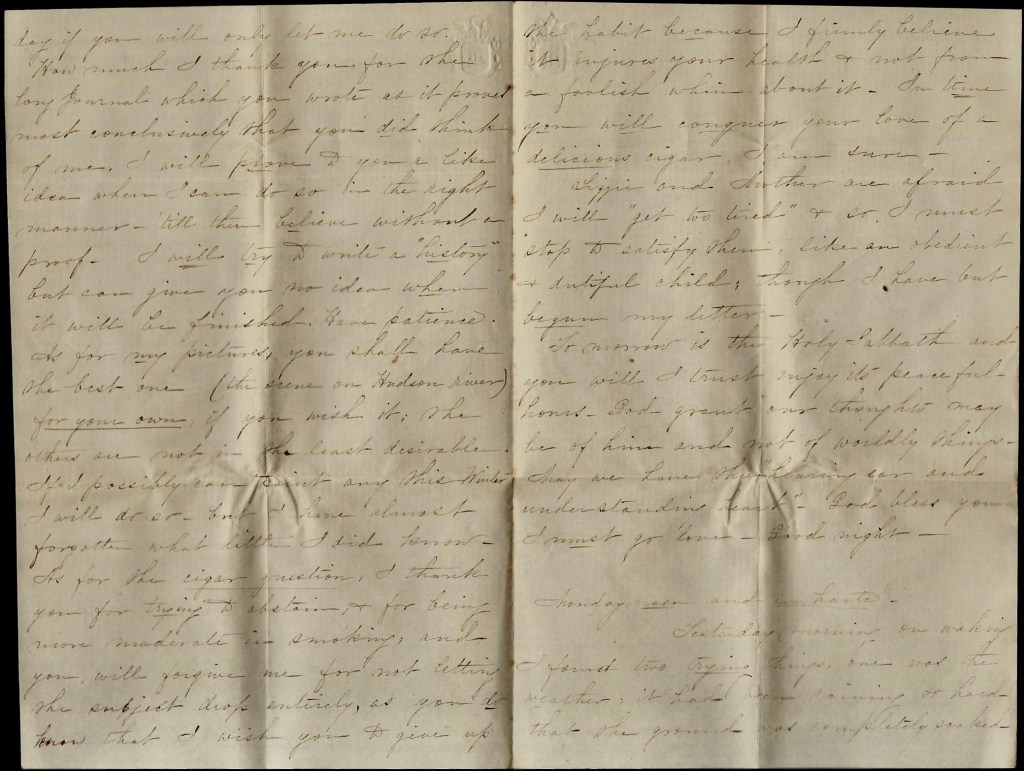 day if you will only let me do so.
How much I thank you for the
long Journal which you wrote as it proves
most conclusively that you did think
of me. I will prove to you a like
idea when I can do so in the right
manner - 'till then believe without a
proof - I will try to write a "history"
but can give you no idea when
it will be finished. Have patience.
As for my pictures, you shall have
the best one (the scene on Hudson river)
for your own, if you wish it; the
others are not in the least desirable.
If I possibly can paint any this Winter
I will do so - but I have almost
forgotten what little I did know -
As for the cigar question, I thank
you for trying to abstain, & for being
more moderate in smoking; and
you will forgive me for not letting
the subject drop entirely, as you do
know that I wish you to give up
the habit because I firmly believe
it injures your health & not from
a foolish whim about it - In time
you will conquer your love of a
delicious cigar, I am sure -
Lizzie and Mother are afraid
I will "get too tired" & so I must
stop to satisfy them, like an obedient
& dutiful child; though I have but
begun my letter -
To morrow is the Holy Sabbath and
you will I trust enjoy its peaceful
hours - God grant our thoughts may
be of him and not of worldly things -
May we have "the hearing ear and
understanding heart" - God bless you -
I must go 'love - Good night -
Monday noon and in haste -
Yesterday morning on waking
I found two trying things, one was the
weather; it had been raining so hard
that the ground was completely soaked